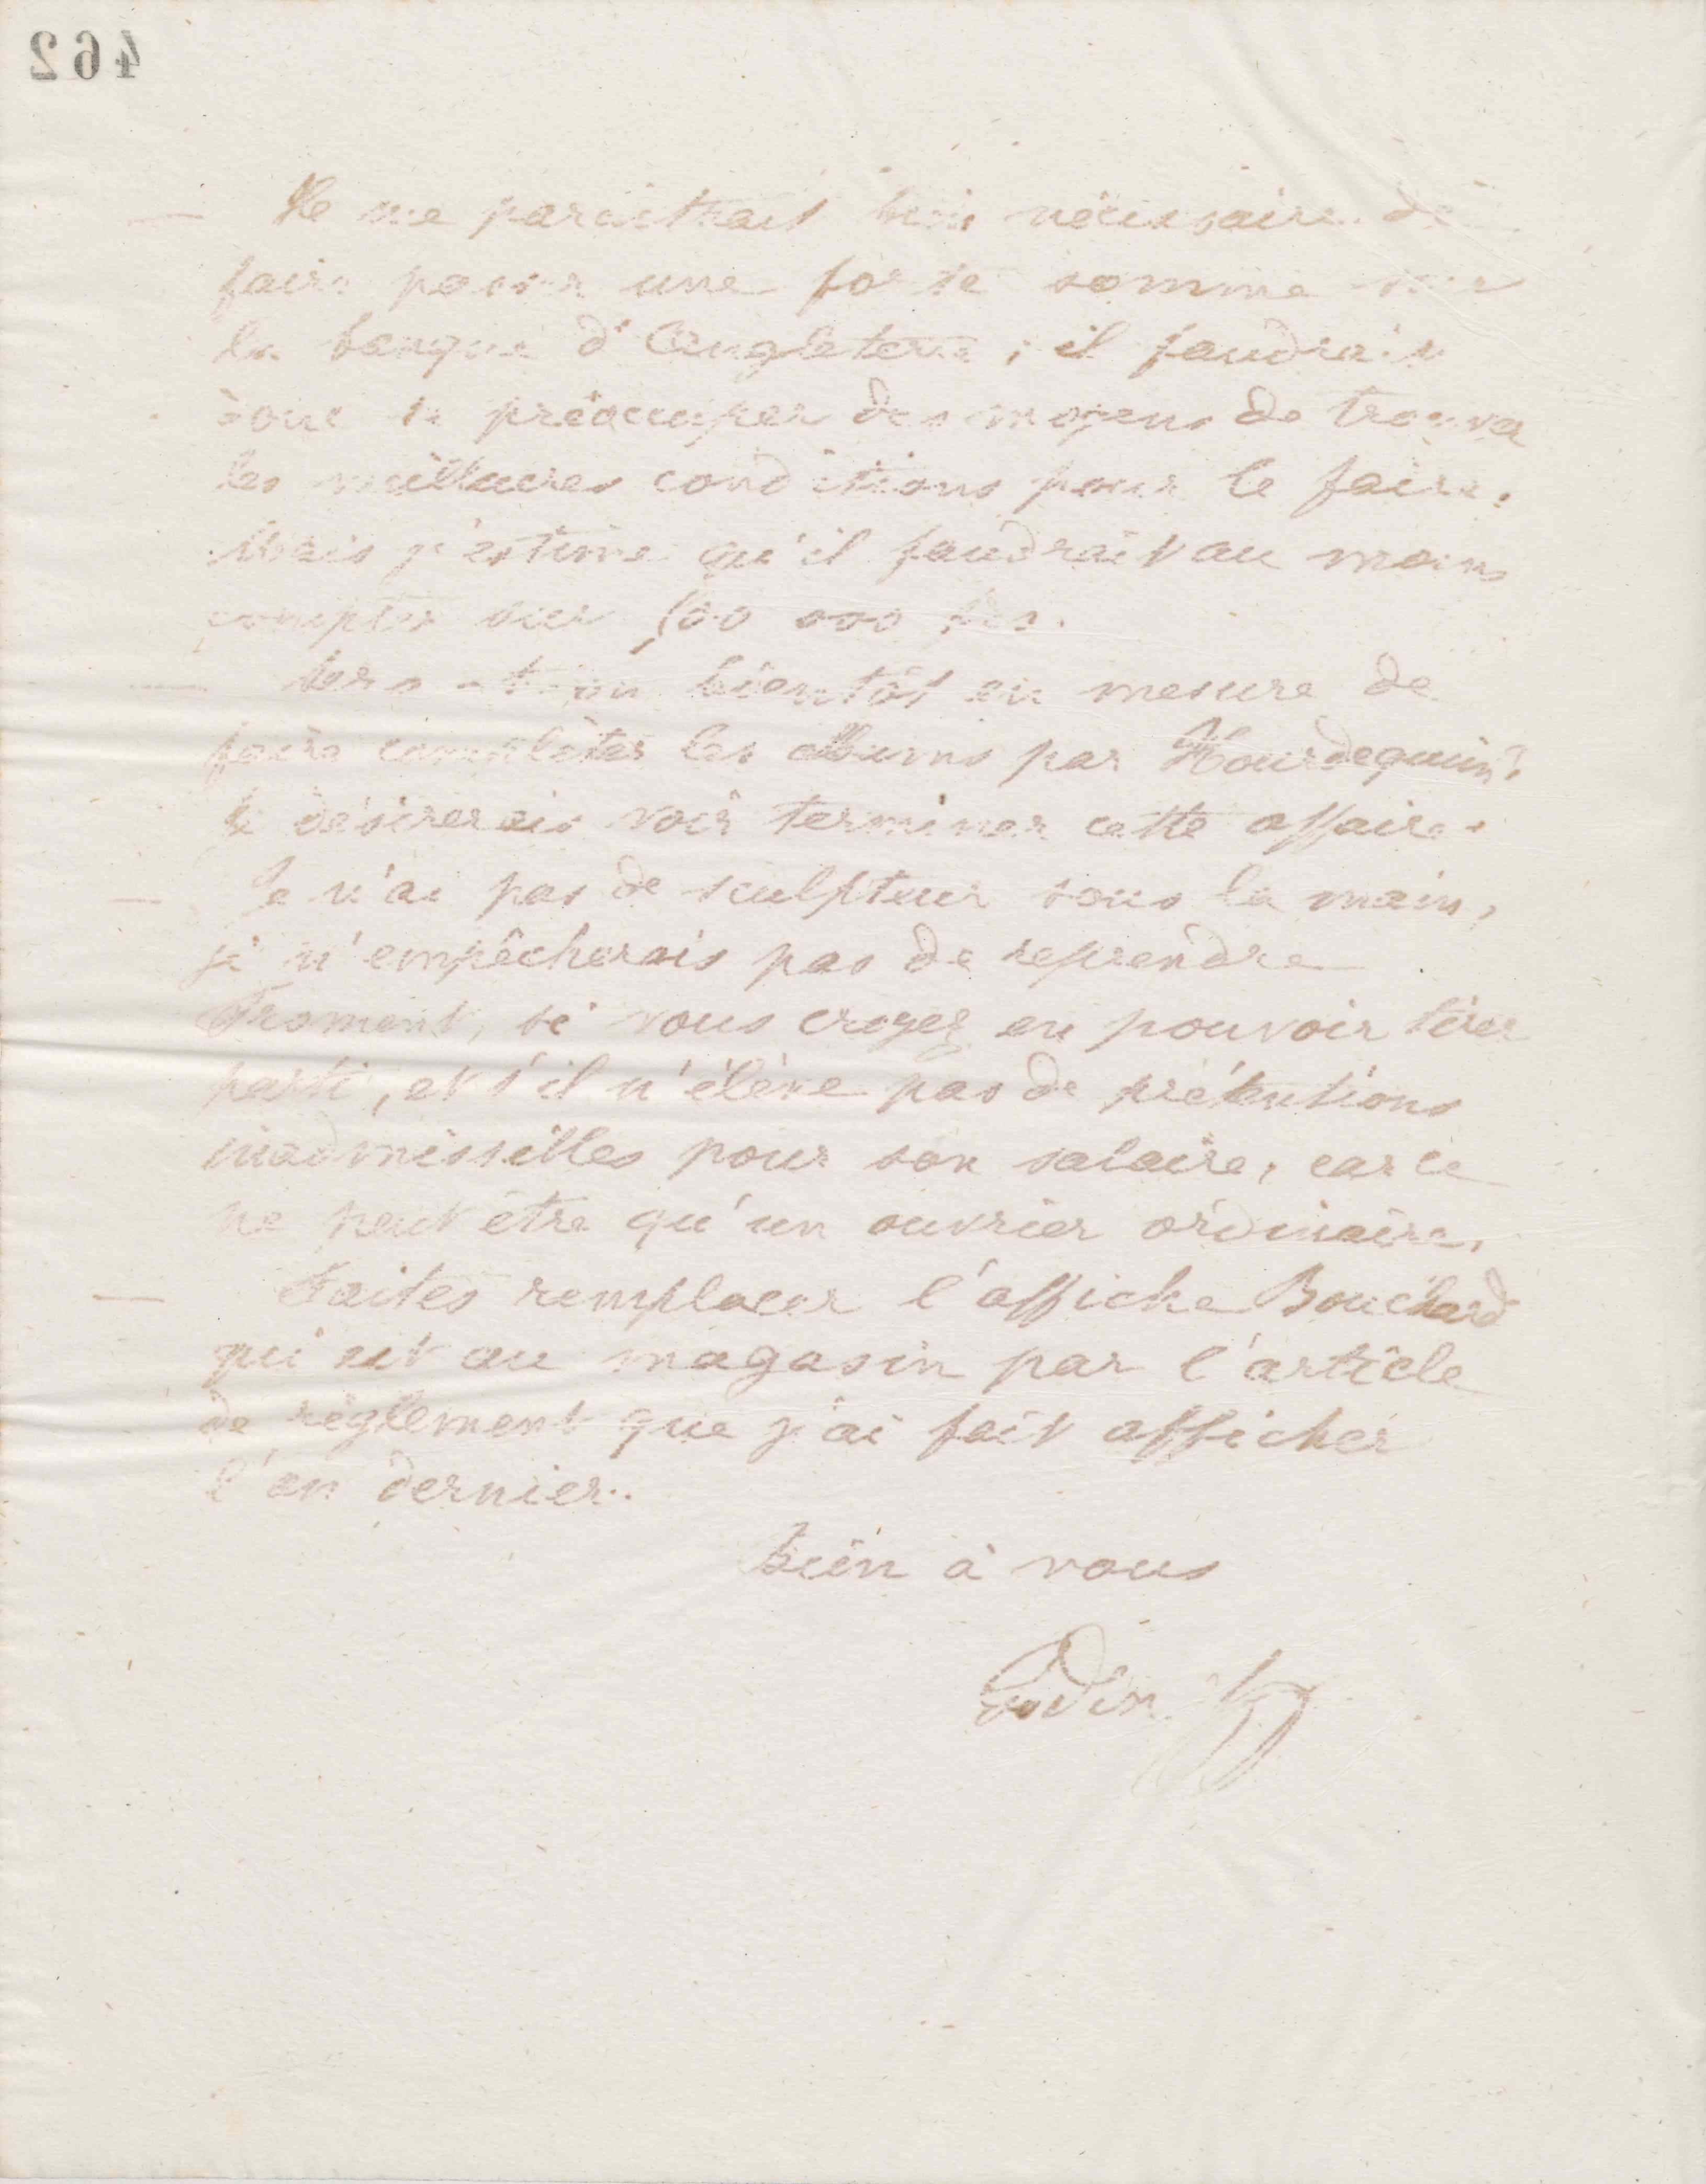 462
— Il me paraîtrait bien nécessaire de
faire passer une forte somme sur
la banque d'Angleterre ; il faudrait
donc se préoccuper des moyens de trouver
les meilleures conditions pour le faire.
Mais j'estime qu'il faudrait au moins
compter sur 500 000 frs.
— Sera-t-on bientôt en mesure de
faire compléter les albums par Hourdequin ?
Je désirerais voir terminer cette affaire.
— Je n'ai pas de sculpteur sous la main,
je n'empêcherais pas de reprendre
Froment, si vous croyez en pouvoir tirer
parti, et s'il n'élève pas de prétentions
inadmissibles pour son salaire, car ce
ne peut être qu'un ouvrier ordinaire.
— Faites remplacer l'affiche Bouchard
qui est au magasin par l'article
de règlement que j'ai fait afficher
l'an dernier.
bien à vous
Godin